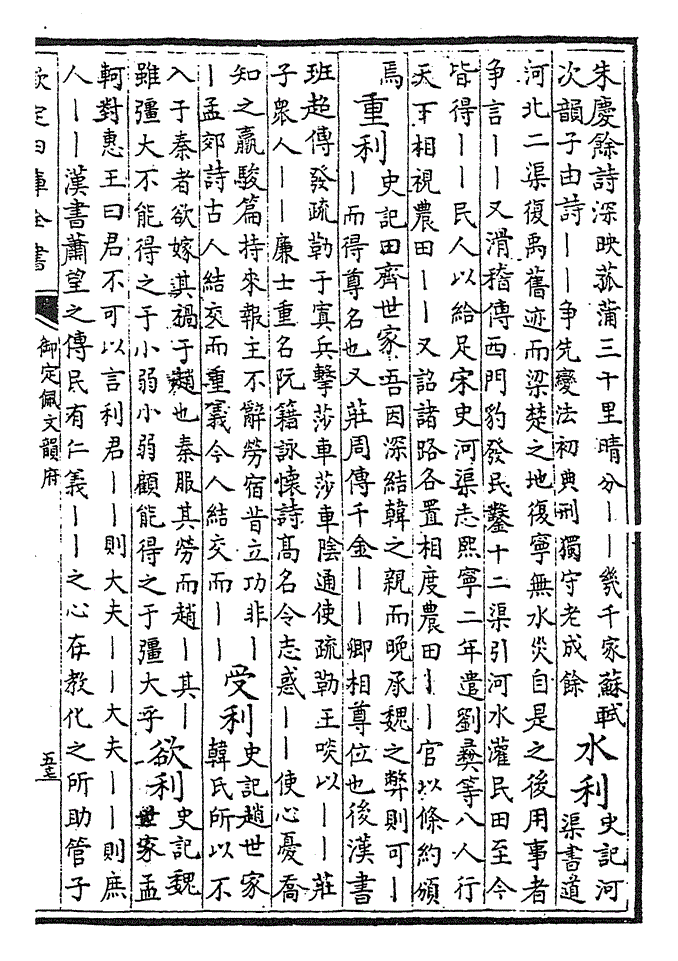 朱慶餘詩深映菰蒲三十里晴分丨丨幾千家蘇軾
次韻子由詩丨丨爭先變法初典刑獨守老成餘
水利
史記河
渠書道
河北二渠復禹舊迹而梁楚之地復寧無水災自是之後用事者
爭言丨丨又滑稽傳西門豹發民鑿十二渠引河水灌民田至今
皆得丨丨民人以給足宋史河渠志熙寧二年遣劉彝等八人行
天下相視農田丨丨又詔諸路各置相度農田丨丨官以條約頒
焉
重利
史記田齊世家吾因深結韓之親而晚承魏之弊則可丨
丨而得尊名也又莊周傳千金丨丨卿相尊位也後漢書
班超傳發疏勒于寘兵擊莎車莎車陰通使疏勒王啖以丨丨莊
子衆人丨丨廉士重名阮籍詠懷詩高名令志惑丨丨使心憂喬
知之羸駿篇持來報主不辭勞宿昔立功非丨
丨孟郊詩古人結交而重義今人結交而丨丨
受利
史記趙世家
韓氏所以不
入于秦者欲嫁其禍于趙也秦服其勞而趙丨其丨
雖彊大不能得之于小弱小弱顧能得之于彊大乎
欲利
史記魏
世家孟
軻對惠王曰君不可以言利君丨丨則大夫丨丨大夫丨丨則庶
人丨丨漢書蕭望之傳民有仁義丨丨之心在教化之所助管子
欽定四庫全書
御定佩文韻府